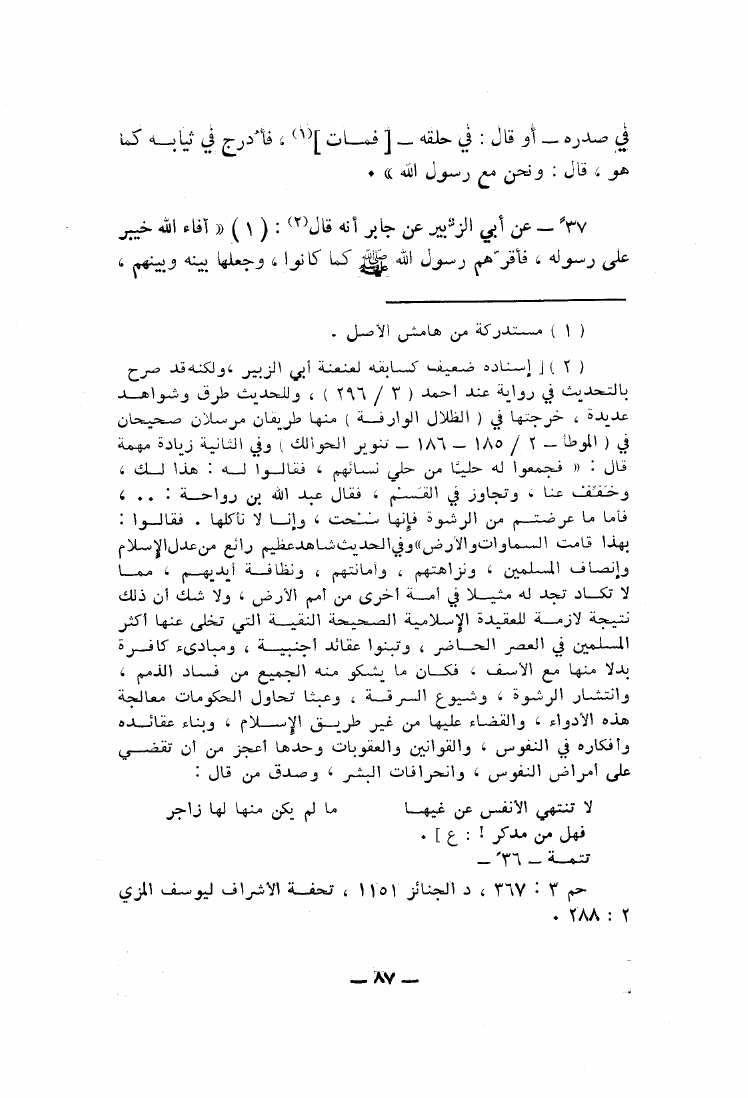 في صدره ــ أو قال : في حلقه ــ [ فمــات ](١) ، فأُدرج في ثيابــه كما
هو ، قال : ونحن مع رسول الله » .
٣٧ً ــ عن أبي الزُّبير عن جابر أنه قال(٢) : ( ١ ) « آفاء الله خيبر
على رسوله ، فأقرَّهم رسول الله ﷺ كما كانوا ، وجعلها بينه وبينهم ،
( ١ ) مستدركة من هامش الأصل .
( ٢ ) [ إسناده ضعيف كسابقه لعنعنة أبي الزبير ،ولكنه قد صرح
بالتحديث في رواية عند احمد ( ٣ / ٢٩٦ ) ، وللحديث طرق وشواهــد
عديدة ، خرجتها في ( الظلال الوارفــة ) منها طريقان مرسلان صحيحان
في ( الموطأ ــ ٢ / ١٨٥ ــ ١٨٦ ــ تنوير الحوالك ) وفي الثانية زيادة مهمة
قال : « فجمعوا له حليًا من حلي نسائهم ، فقالــوا لــه : هذا لــك ،
وخفِّف عنا ، وتجاوز في القَسْــم ، فقال عبد الله بن رواحــة : ٠٠ ،
فأما ما عرضتــم من الرشوة فإنها سُحت ، وإنــا لا نأكلها . فقالــوا :
بهذا قامت السماوات والأرض» وفي الحديث شاهد عظيم رائع من عدل الإسلام
وإنصاف المسلمين ، ونزاهتهم ، وأمانتهم ، ونظافــة أيديهــم ، ممــا
لا تكــاد تجد له مثيــلا في أمــة أخرى من أمم الأرض ، ولا شك أن ذلك
نتيجة لازمــة للعقيدة الإسلامية الصحيحة النقيــة التي تخلى عنها أكثر
المسلمين في العصر الحاضر ، وتبنوا عقائد أجنبيــة ، ومبادىء كافــرة
بدلا منها مع الأسف ، فكــان ما يشكو منه الجميع من فساد الذمم ،
وانتشار الرشوة ، وشيوع السرقــة ، وعبثا تحاول الحكومات معالجة
هذه الأدواء ، والقضاء عليها من غير طريــق الإســلام ، وبناء عقائــده
وأفكاره في النفوس ، والقوانين والعقوبات وحدها أعجز من أن تقضــي
على أمراض النفوس ، وانحرافات البشر ، وصدق من قال :
لا تنتهي الأنفس عن غيهــا ما لم يكن منها لها زاجر
فهل من مدكر ! : ع ] .
تتمــة ــ ٣٦ً ــ
حم ٣ : ٣٦٧ ، د الجنائز ١١٥١ ، تحفــة الأشراف ليوسف المزي
٢ : ٢٨٨ .
ــ ٨٧ ــ